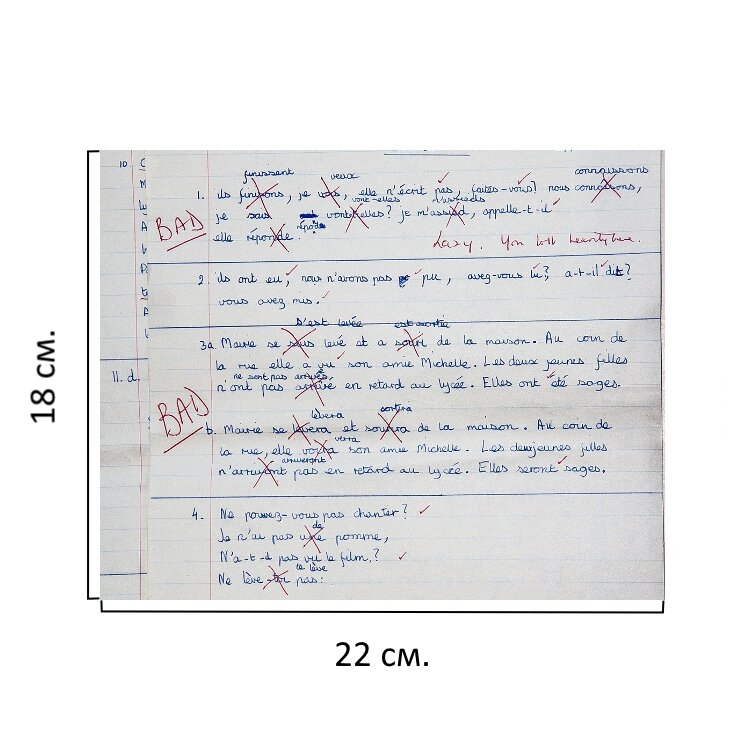 10.
finissent veux connaissons
1. ils finissons, je vous, elle n'écrit pas, faites-vous? nous connaisons,
vont-elles m'assieds
je sais vont-elles? je m'assied, appelle-t-il
BAD
répond
elle réponde.
Lazy. You
2. ils ont eu, nous n'avons pas pu, avez-vous lu? a-t-il dit?
vous avez mis.
s'est levée est sortie
3a Marie se suis levé et a sorti de la maison. Au coin de
la rue elle a vu son amie Michelle. Les deux jeunes filles
ne sont pas arrivés.
11. d. n'ont pas arrivé en retard au lycée. Elles ont été sages.
BAD
lèvera sortira
b. Marie se levera et sortira de la maison. Au coin de
verra
la rue, elle voira son amie Michelle. Les deux jeunes filles
arriveront
n'arriveront pas en retard au lycée. Elles seront sages.
4. Ne pouvez-vous pas chanter?
de
Je n'ai pas une pomme,
N'a-t-il pas vu le film?
te lève
Ne lève-toi pas.
18 см.
22 см.